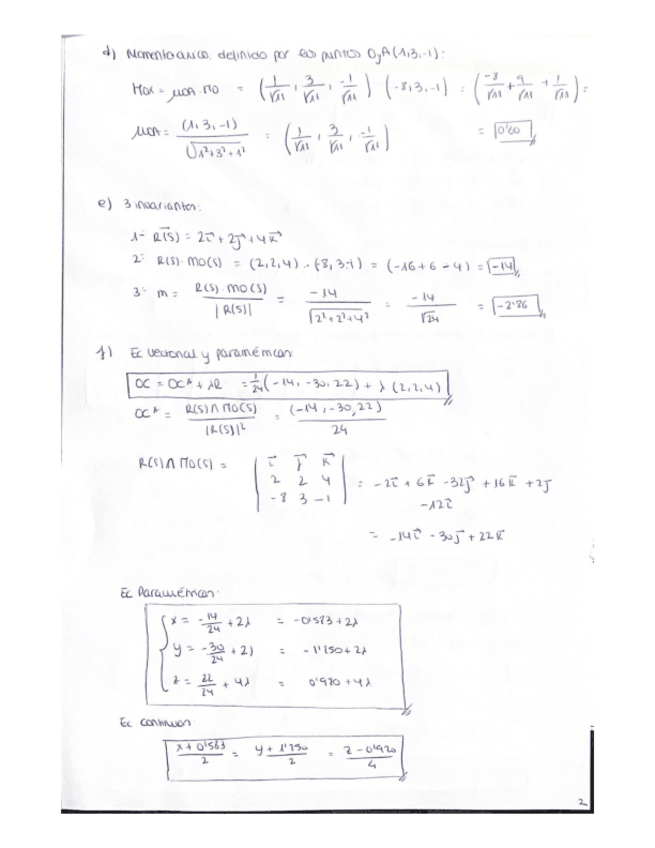 d) Momento áxico, definido por los puntos O y A (1,3,-1):
Mox = μOA · MO = (1/√11, 3/√11, -1/√11) · (-8,3,-1) = (-8/√11 + 9/√11 + 1/√11) =
μOA = (1,3,-1) / √1²+3²+1² = (1/√11, 3/√11, -1/√11) = 0'60
e) 3 invariantes:
1- R(S) = 2i + 2j + 4k
2- R(S) · MO(S) = (2,2,4) · (-8,3,-1) = (-16+6-4) = -14
3- m = R(S) · MO(S) / |R(S)| = -14 / √2²+2²+4² = -14 / √24 = -2'86
f) Ec Vectorial y paramétrica:
OC = OC* + λR = 1/24 (-14, -30, 22) + λ (2,2,4)
OC* = R(S) ∧ MO(S) / |R(S)|² = (-14, -30, 22) / 24
R(S) ∧ MO(S) = | i j k | 2 2 4 | -8 3 -1 | = -2i + 6k - 32j + 16k + 2j
-12i
= -14i - 30j + 22k
Ec Paramétrica:
x = -14/24 + 2λ = -0'583 + 2λ
y = -30/24 + 2λ = -1'250 + 2λ
z = 22/24 + 4λ = 0'920 + 4λ
Ec continua:
x + 0'583 / 2 = y + 1'250 / 2 = z - 0'920 / 4
2